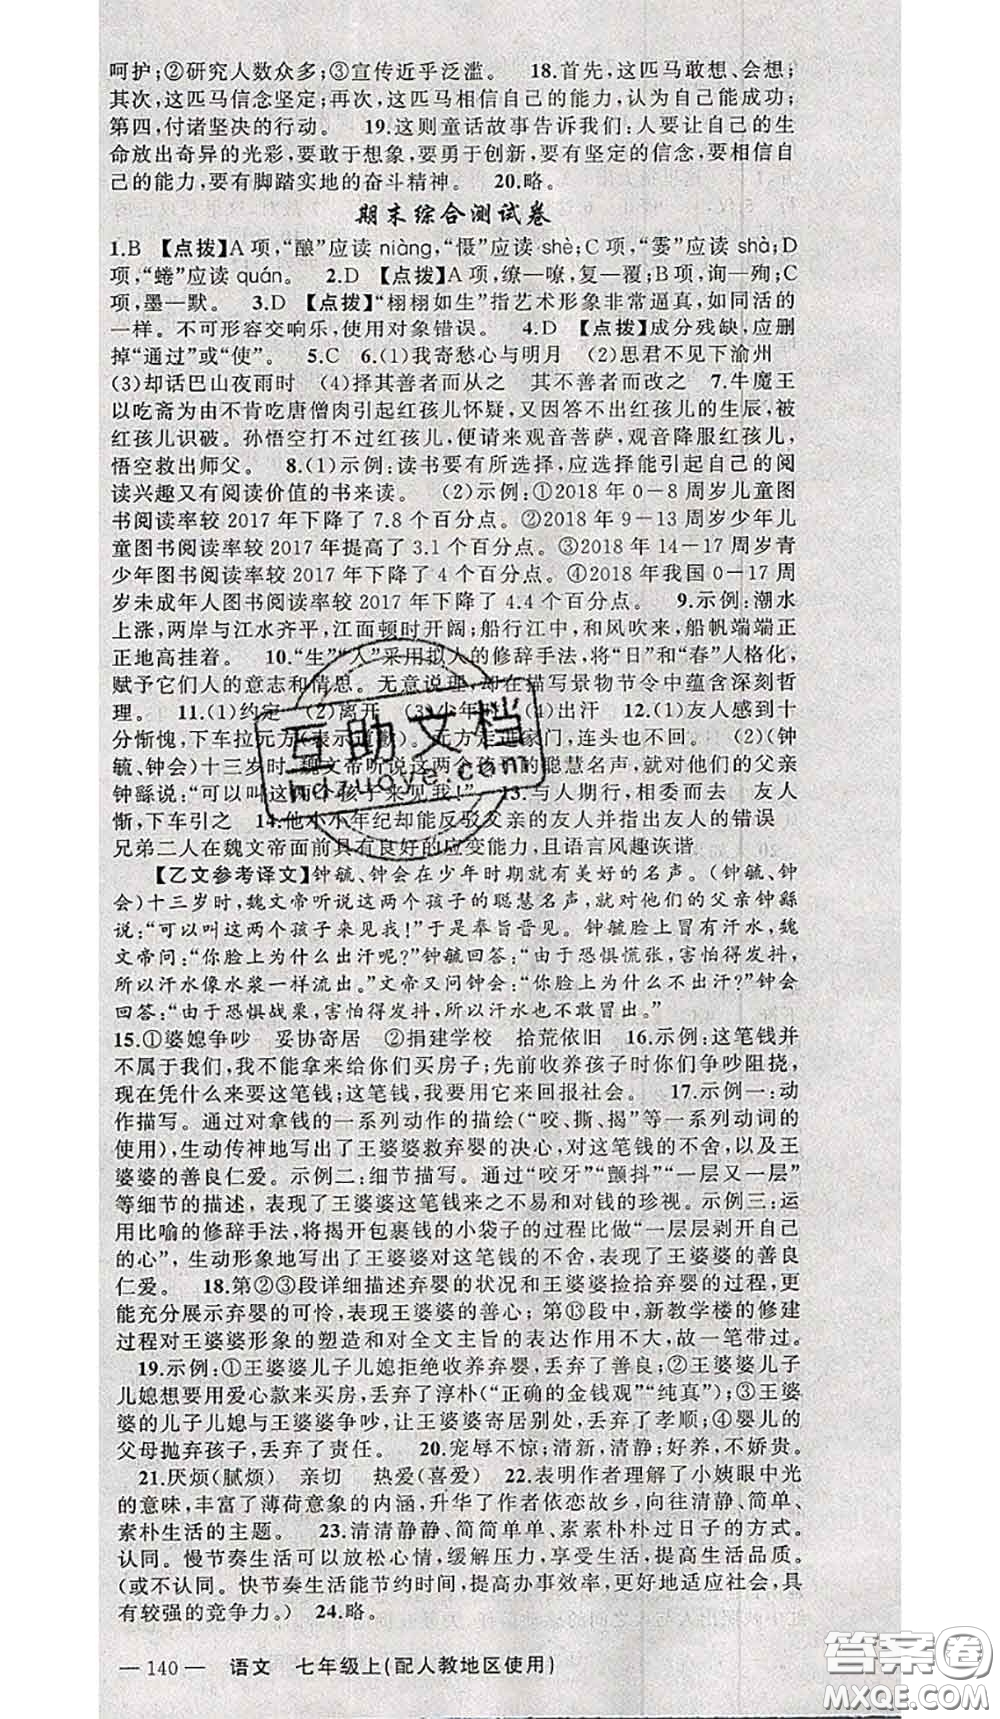 呵护;②研究人数众多;③宣传近乎泛滥。 18.首先,这匹马敢想、会想;
其次,这匹马信念坚定;再次,这匹马相信自己的能力,认为自己能成功;
第四,付诸坚决的行动。 19.这则童话故事告诉我们:人要让自己的生
命放出奇异的光彩,要敢于想象,要勇于创新,要有坚定的信念,要相信自
己的能力,要有脚踏实地的奋斗精神。 20.略。
期末综合测试卷
1.B 【点拨】A项,“酿”应读 niàng,“慑”应读 shè;C项,“霎”应读 shà;D
项,“蜷”应读 quán。 2.D 【点拨】A项,缭—嘹,复—覆;B项,询—殉;C
项,墨—默。 3.D 【点拨】“栩栩如生”指艺术形象非常逼真,如同活的
一样。不可形容交响乐,使用对象错误。 4.D 【点拨】成分残缺,应删
掉“通过”或“使”。 5.C 6.(1)我寄愁心与明月 (2)思君不见下渝州
(3)却话巴山夜雨时 (4)择其善者而从之 其不善者而改之 7.牛魔王
以吃斋为由不肯吃唐僧肉引起红孩儿怀疑,又因答不出红孩儿的生辰,被
红孩儿识破。孙悟空打不过红孩儿,便请来观音菩萨,观音降服红孩儿,
悟空救出师父。 8.(1)示例:读书要有所选择,应选择能引起自己的阅
读兴趣又有阅读价值的书来读。 (2)示例:①2018 年 0-8 周岁儿童图
书阅读率较 2017 年下降了 7.8 个百分点。②2018 年 9-13 周岁少年儿
童图书阅读率较 2017 年提高了 3.1 个百分点。③2018 年 14-17 周岁青
少年图书阅读率较 2017 年下降了 4 个百分点。④2018 年我国 0-17 周
岁未成年人图书阅读率较 2017 年下降了 4.4 个百分点。 9.示例:潮水
上涨,两岸与江水齐平,江面顿时开阔;船行江中,和风吹来,船帆端端正
正地高挂着。 10.“生”“入”采用拟人的修辞手法,将“日”和“春”人格化,
赋予它们人的意志和情思。无意说理,却在描写景物节令中蕴含深刻哲
理。 11.(1)约定 (2)离开 (3)少年时 (4)出汗 12.(1)友人感到十
分惭愧,下车拉元方(表示道歉)。元方走进家门,连头也不回。 (2)(钟
毓、钟会)十三岁时,魏文帝听说这两个孩子的聪慧名声,就对他们的父亲
钟繇说:“可以叫这两个孩子来见我!” 13.与人期行,相委而去 友人
惭,下车引之 14.他小小年纪却能反驳父亲的友人并指出友人的错误
兄弟二人在魏文帝面前具有良好的应变能力,且语言风趣诙谐
【乙文参考译文】钟毓、钟会在少年时期就有美好的名声。(钟毓、钟
会)十三岁时,魏文帝听说这两个孩子的聪慧名声,就对他们的父亲钟繇
说:“可以叫这两个孩子来见我!”于是奉旨晋见。钟毓脸上冒有汗水,魏
文帝问:“你脸上为什么出汗呢?”钟毓回答:“由于恐惧慌张,害怕得发抖,
所以汗水像水浆一样流出。”文帝又问钟会:“你脸上为什么不出汗?”钟会
回答:“由于恐惧战栗,害怕得发抖,所以汗水也不敢冒出。”
15.①婆媳争吵 妥协寄居 ②捐建学校 拾荒依旧 16.示例:这笔钱并
不属于我们,我不能拿来给你们买房子;先前收养孩子时你们争吵阻挠,
现在凭什么来要这笔钱;这笔钱,我要用它来回报社会。 17.示例一:动
作描写。通过对拿钱的一系列动作的描绘(“咬、撕、揭”等一系列动词的
使用),生动传神地写出了王婆婆救弃婴的决心,对这笔钱的不舍,以及王
婆婆的善良仁爱。示例二:细节描写。通过“咬牙”“颤抖”“一层又一层”
等细节的描述,表现了王婆婆这笔钱来之不易和对钱的珍视。示例三:运
用比喻的修辞手法,将打开包裹钱的小袋子的过程比做“一层层剥开自己
的心”,生动形象地写出了王婆婆对这笔钱的不舍,表现了王婆婆的善良
仁爱。 18.第②③段详细描述弃婴的状况和王婆婆捡拾弃婴的过程,更
能充分展示弃婴的可怜,表现王婆婆的善心;第⑬段中,新教学楼的修建
过程对王婆婆形象的塑造和对全文主旨的表达作用不大,故一笔带过。
19.示例:①王婆婆儿子儿媳拒绝收养弃婴,丢弃了善良;②王婆婆儿子
儿媳想要用爱心款来买房,丢弃了淳朴(“正确的金钱观”“纯真”);③王婆
婆的儿子儿媳与王婆婆争吵,让王婆婆寄居别处,丢弃了孝顺;④婴儿的
父母抛弃孩子,丢弃了责任。 20.宠辱不惊;清新,清静;好养,不娇贵。
21.厌烦(腻烦) 亲切 热爱(喜爱) 22.表明作者理解了小姨眼中光
的意味,丰富了薄荷意象的内涵,升华了作者依恋故乡,向往清静、简单、
素朴生活的主题。 23.清清静静、简简单单、素素朴朴过日子的方式。
认同。慢节奏生活可以放松心情,缓解压力,享受生活,提高生活品质。
(或不认同。快节奏生活能节约时间,提高办事效率,更好地适应社会,具
有较强的竞争力。) 24.略。
— 140 — 语文 七年级上(配人教地区使用)
互助文档
hdzuoye.com
答案圈
MXQE.COM